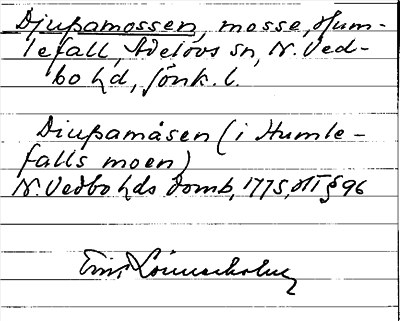 Djupamossen, mosse, Hum-
lefall, Adelövs sn, N. Ved-
bo hd, Jönk. l.
Diupamåsen (i Humle-
falls moen)
N. Vedbo hds domb, 1775, HT § 96